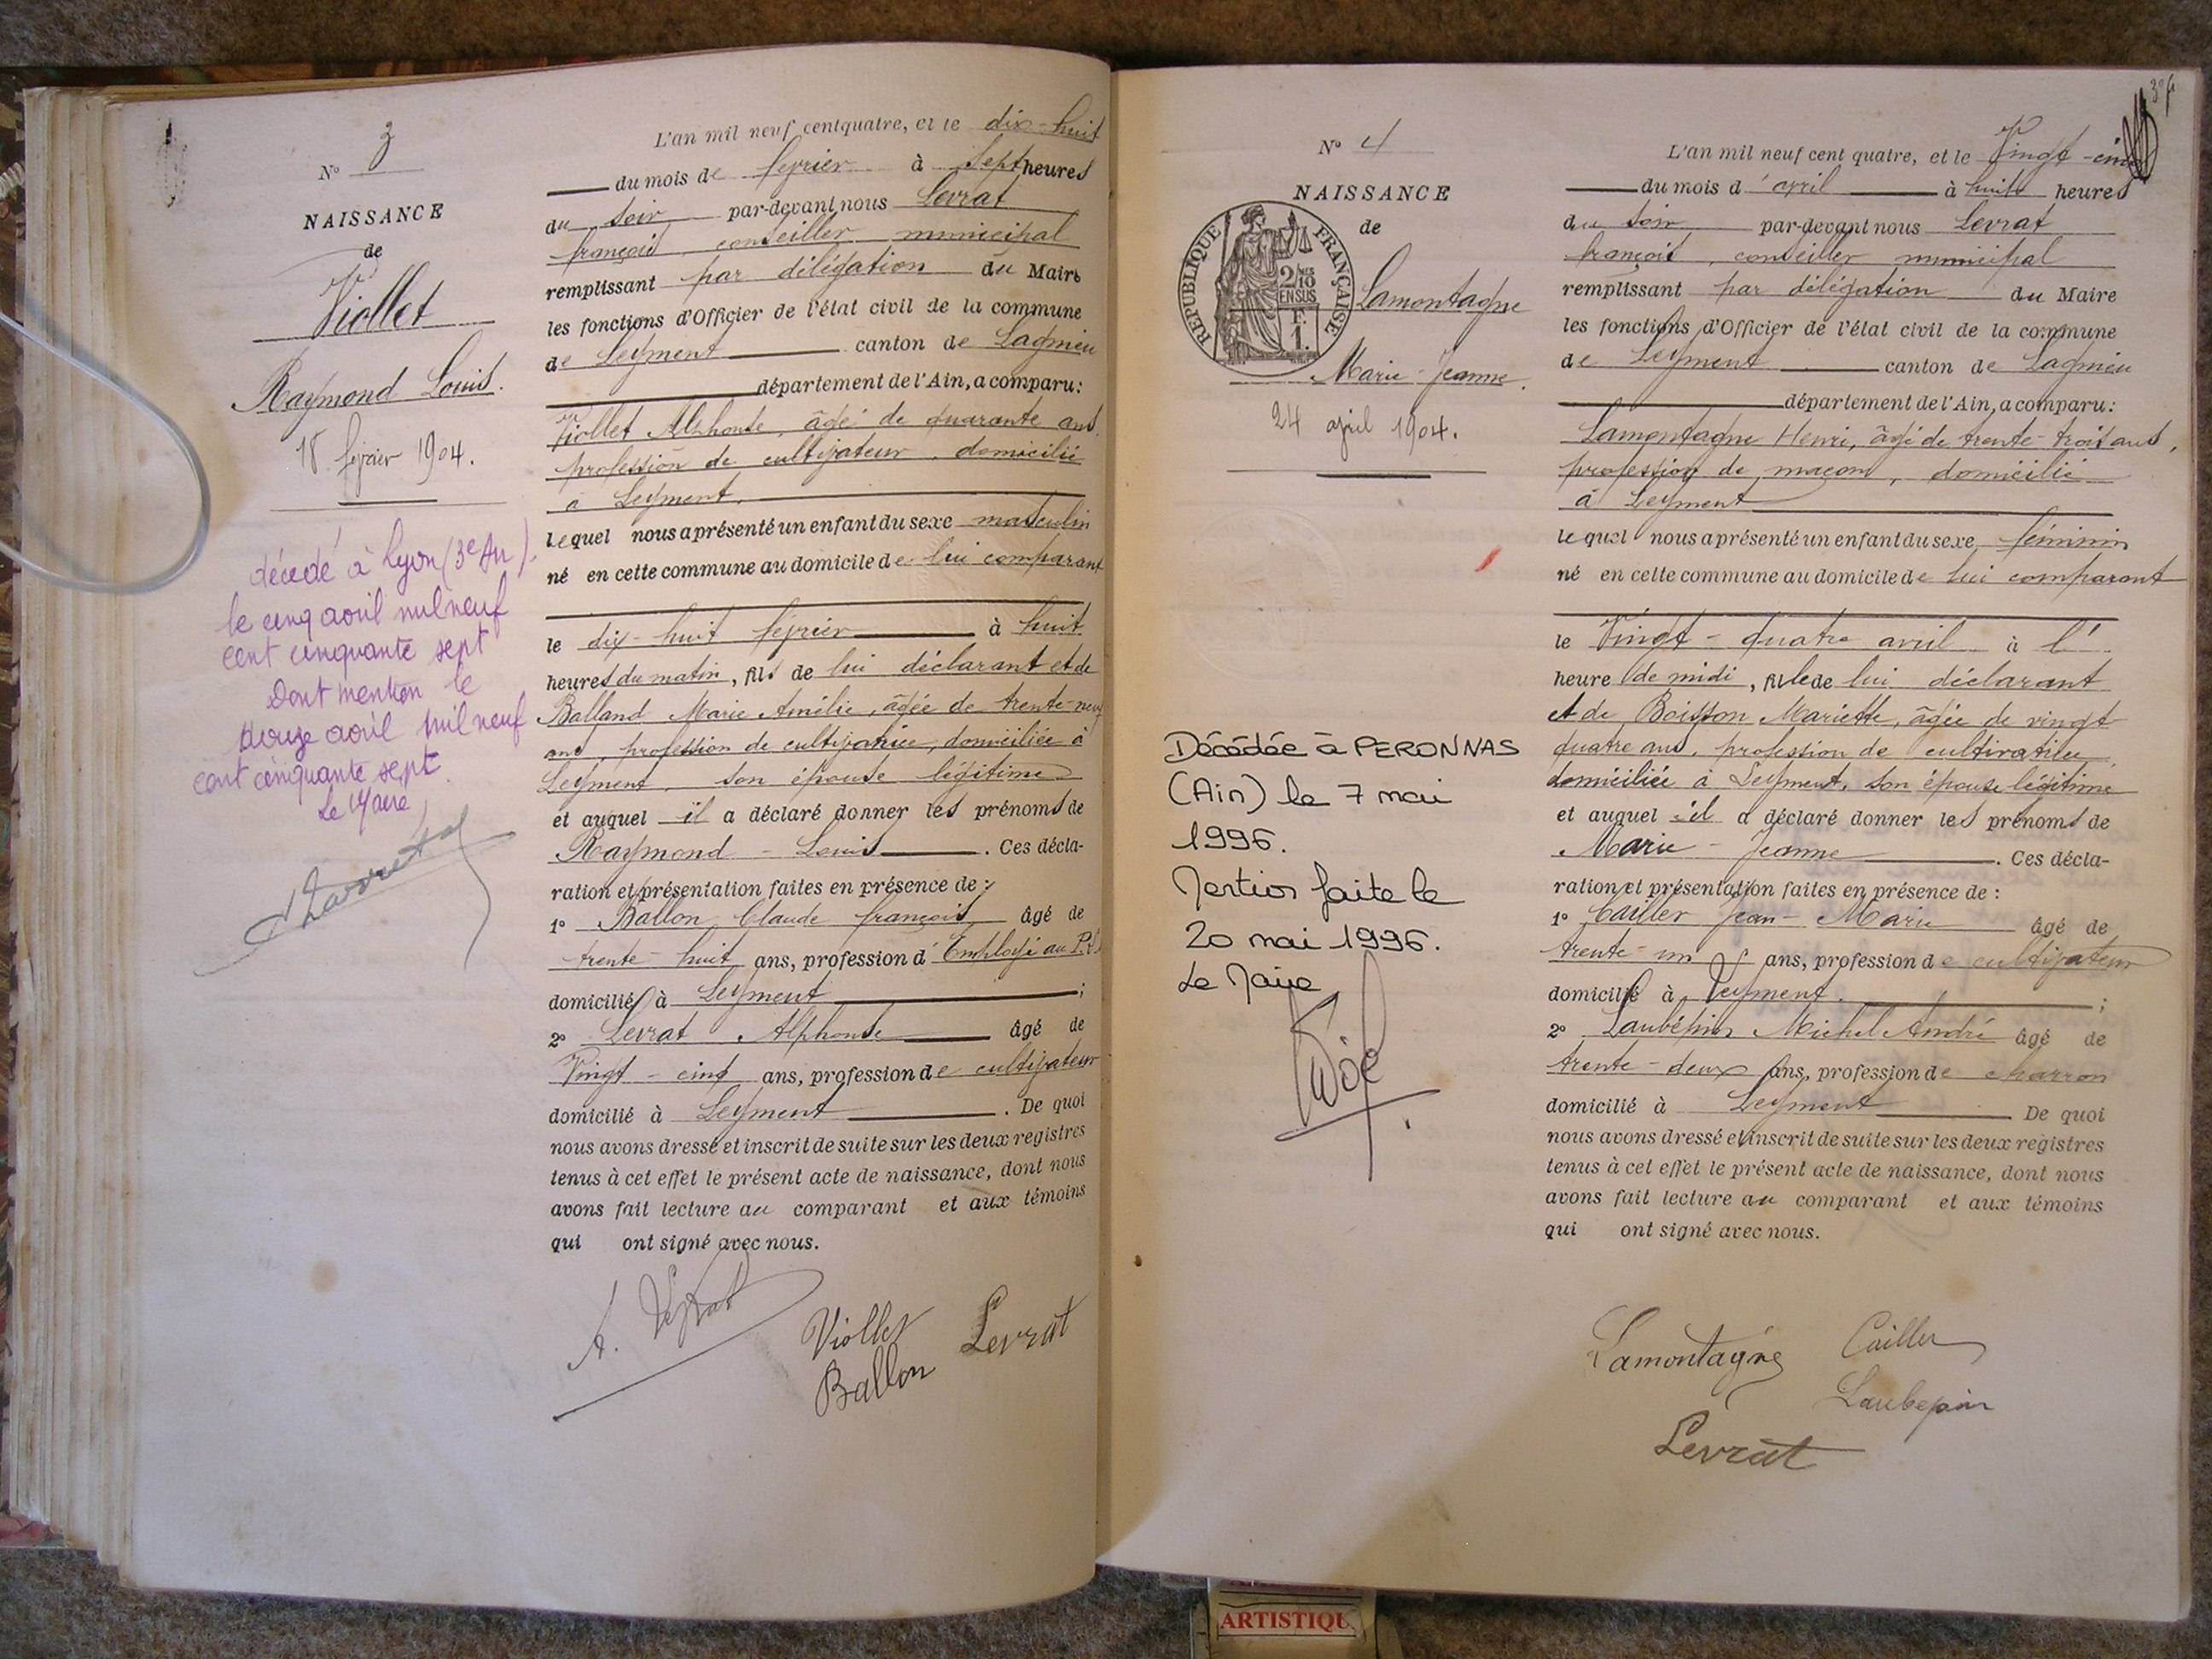 N° 3
NAISSANCE
de
Viollet
Raymond Louis.
18 février 1904.
décédé à Lyon (3e Arr).
le cinq avril mil neuf
cent cinquante sept
Dont mention le
douze avril mil neuf
cent cinquante sept.
Le Maire,
L'an mil neuf cent quatre, et le dix-huit
du mois de février à Sept heures
du Soir par-devant nous Levrat
françois, conseiller municipal
remplissant par délégation du Maire
les fonctions d'Officier de l'état civil de la commune
de Leyment canton de Lagnieu
département de l'Ain, a comparu:
Viollet Alphonse, âgé de quarante ans,
profession de cultivateur, domicilié
à Leyment,
lequel nous a présenté un enfant du sexe masculin
né en cette commune au domicile de lui comparant
le dix-huit février à huit
heures du matin, fils de lui déclarant et de
Balland Marie Amélie, âgée de trente-neuf
ans, profession de cultivatrice, domiciliée à
Leyment, son épouse légitime
et auquel il a déclaré donner les prénoms de
Raymond - Louis. Ces décla-
ration et présentation faites en présence de:
1° Ballon Claude françois âgé de
trente-huit ans, profession d'Employé au P.L.
domicilié à Leyment;
2° Levrat Alphonse âgé de
Vingt-cinq ans, profession de cultivateur
domicilié à Leyment. De quoi
nous avons dressé et inscrit de suite sur les deux registres
tenus à cet effet le présent acte de naissance, dont nous
avons fait lecture au comparant et aux témoins
qui ont signé avec nous.
A. Levrat
Viollet
Levrat
Ballon
N° 4
NAISSANCE
de
REPUBLIQUE FRANÇAISE
2/10
EN SUS
F.
1.
Lamontagne
Marie-Jeanne.
24 avril 1904.
Décédée à PERONNAS
(Ain) le 7 mai
1996.
Mention faite le
20 mai 1996.
Le Maire
L'an mil neuf cent quatre, et le Vingt-cinq
du mois d'avril à huit heures
du soir par-devant nous Levrat
françois, conseiller municipal
remplissant par délégation du Maire
les fonctions d'Officier de l'état civil de la commune
de Leyment canton de Lagnieu
département de l'Ain, a comparu:
Lamontagne Henri, âgé de trente-trois ans,
profession de maçon, domicilié
à Leyment
lequel nous a présenté un enfant du sexe féminin
né en cette commune au domicile de lui comparant
le Vingt-quatre avril à l'
heure de midi, fille de lui déclarant
et de Boisson Mariette, âgée de vingt
quatre ans, profession de cultivatrice
domiciliée à Leyment, son épouse légitime
et auquel il a déclaré donner les prénoms de
Marie - Jeanne. Ces décla-
ration et présentation faites en présence de:
1° Cailler Jean-Marie âgé de
trente-un ans, profession de cultivateur
domicilié à Leyment.;
2° Laubépin Michel André âgé de
trente-deux ans, profession de charron
domicilié à Leyment De quoi
nous avons dressé et inscrit de suite sur les deux registres
tenus à cet effet le présent acte de naissance, dont nous
avons fait lecture au comparant et aux témoins
qui ont signé avec nous.
Lamontagne
Cailler
Laubepin
Levrat
ARTISTIQU